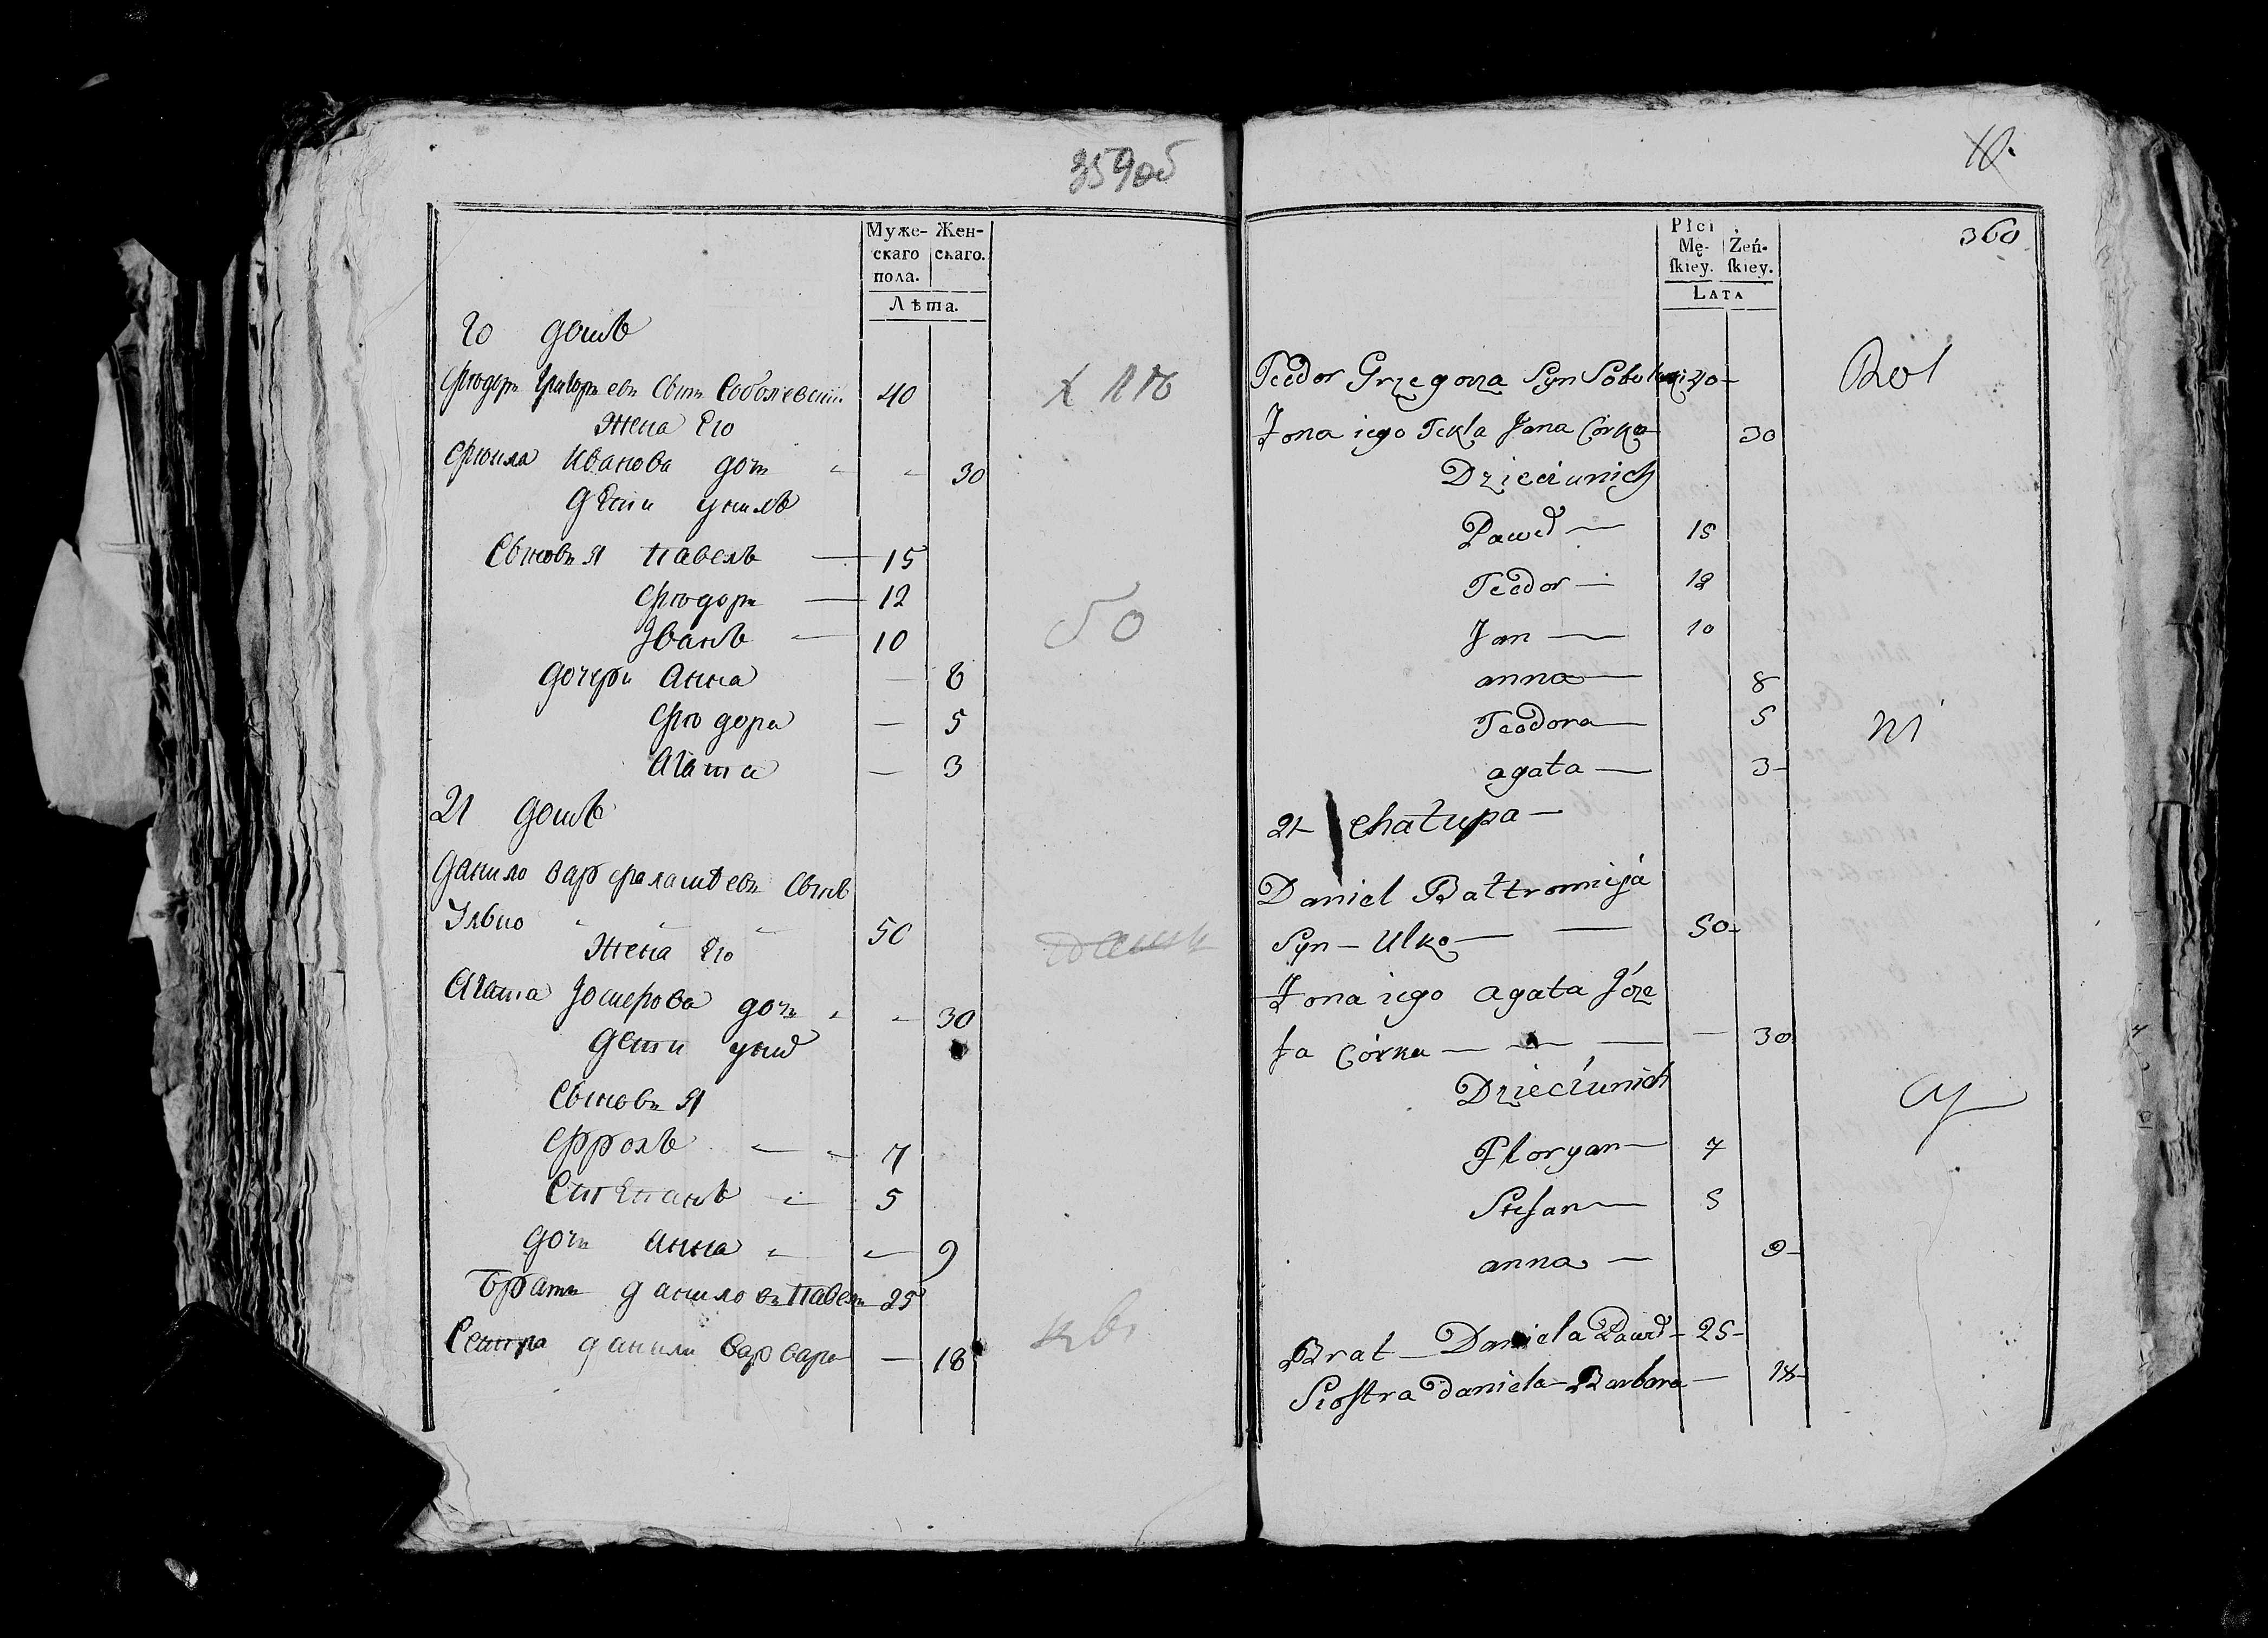 359об
Муже- Жен-
скаго скаго.
пола.
Лѣта.
20 домъ
Фіодоръ Григорьевъ Сынъ Соболевски 40
Жена Его
Фіокла Иванова дочь 30
дѣти унихъ
Сыновья Павелъ — 15
Фіодоръ — 12
Іванъ — 10
дочери Анна — 8
Фіодора — 5
Агата — 3
21 домъ
Данило варфаламѣевъ Сынъ
Улько 50
Жена Его
Агата Іозмерова дочь 30
дети унихъ
Сыновья
Фролъ — 7
Степанъ — 5
дочь Анна — 9
Братъ даниловъ Павелъ 25
Сестра данилы Варвара — 18
360
Płci
Mę- Żeń-
skiey. skiey.
LATA
Teodor Grzegorza Syn Sobolewski 40 —
Żona iego Tekla Jana Córka 30
Dzieci unich
Paweł — 15
Teodor — 12
Jan — 10
anna — 8
Teodora — 5
agata — 3 —
21 — Chałupa —
Daniel Bałtromieja
Syn — Ulko — — 50 —
Żona iego agata Józe
fa Córka — — — 30
Dzieci unich
Floryan — 7
Stefan — 5
anna — 9 —
Brat — Daniela Paweł — 25 —
Siostra Daniela — Barbara — 18 —